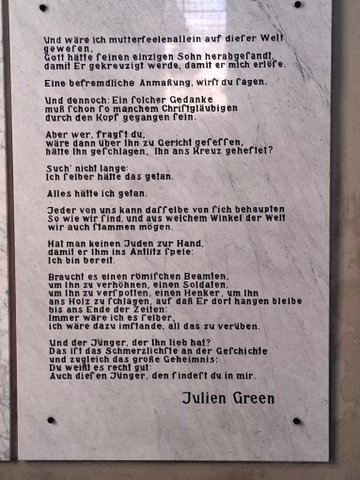 Und wäre ich mutterſeelenallein auf dieſer Welt
geweſen,
Gott hätte ſeinen einzigen Sohn herabgeſandt,
damit Er gekreuzigt werde, damit er mich erlöſe.
Eine befremdliche Anmaßung, wirſt du ſagen.
Und dennoch: Ein ſolcher Gedanke
muß ſchon ſo manchem Chriſtgläubigen
durch den Kopf gegangen ſein.
Aber wer, fragſt du,
wäre dann über Ihn zu Gericht geſeſſen,
hätte Ihn geſchlagen, Ihn ans Kreuz geheftet?
Such' nicht lange:
Ich ſelber hätte das getan.
Alles hätte ich getan.
Jeder von uns kann daſſelbe von ſich behaupten
So wie wir ſind, und aus welchem Winkel der Welt
wir auch ſtammen mögen.
Hat man keinen Juden zur Hand,
damit er Ihm ins Antlitz ſpeie:
Ich bin bereit.
Braucht es einen römiſchen Beamten,
um Ihn zu verhöhnen, einen Soldaten,
um Ihn zu verſpotten, einen Henker, um Ihn
ans Holz zu ſchlagen, auf daß Er dort hangen bleibe
bis ans Ende der Zeiten:
Immer wäre ich es ſelber,
ich wäre dazu imſtande, all das zu verüben.
Und der Jünger, der Ihn lieb hat?
Das iſt das Schmerzlichſte an der Geſchichte
und zugleich das große Geheimnis:
Du weißt es recht gut:
Auch dieſen Jünger, den findeſt du in mir.
Julien Green